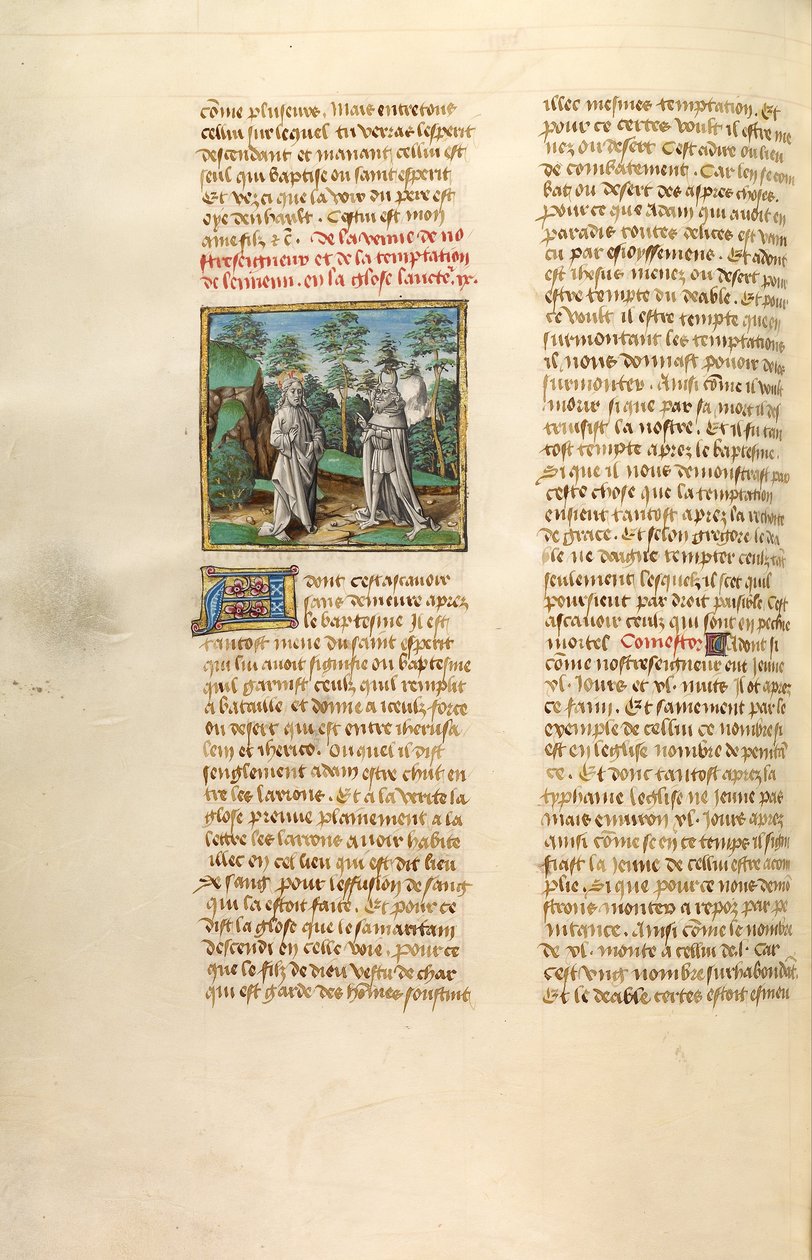 cõme pluseurs. Mais entre tous
cellui sur lequel tu verras lesperit
descendant et manant cellui est
seul qui baptise ou saint esperit
Et vezci que la voix du pere est
oye den hault. Cestui est mon
ame filz &c̃. De la venue de no
streseigneur et de la temptation
de lennemi. en la glose
dont cest ascavoir
sans demeure aprez
le baptesme Il est
tantost mene du saint esperit
qui lui avoit signifie ou baptesme
quil garnist ceulz quil remplit
a bataille et donne a iceulz force
ou desert qui est entre iherusa
lem et iherico. Ou quel il dist
senglement adam estre chut en
tre les larrons. Et a la verite la
glose preuve plainement a la
lettre les larrons avoir habite
illec en cel lieu qui est dit lieu
de sang pour leffusion de sang
qui la estoit faite. Et pour ce
dist la glose que le samaritain
descendi en celle voie. pour ce
que le filz de dieu vestu de char
qui est garde des hõmes soustint
illec mesmes temptation. Et
pour ce certes voult il estre me
nez ou desert Cest adire ou lieu
de combatement. Car len se com
bat ou desert des aspres choses.
pour ce que adam qui avoit en
paradis toutes delices est vain
cu par esioyssemens. Et adont
est ihesus menez ou desert pour
estre tempte du deable. Et pour
ce voult il estre tempte que en
surmontant les temptations
il nous donnast povoir de les
surmonter. Ainsi cõme il voult
morir si que par sa mort il des
truisist la nostre. Et il fu tan
tost tempte aprez le baptesme.
Si que il nous demonstrast par
ceste chose que la temptation
ensient tantost aprez la
de grace. Et selon gregore le dea
ble ne daigne tempter ceulz tãt
seulement lesquelz il scet quil
poursient par droit paisible. Cest
ascavoir ceulz qui sont en pechie
mortel Comestor Adont si
cõme nostreseigneur eut jeune
xl. Jours et xl. nuits Il ot aprez
ce faim. Et sainement par le
exemple de cellui ce nombre si
est en leglise nombre de penitã
ce. Et donc tantost aprez la
typhame leglise ne jeune pas
mais environ xl. Jours aprez
ainsi cõme se en ce temps il signi
fiast la jeune de cellui estre acom
plie. Si que pour ce nous demõ
strons monter a repoz par pe
nitance. Ainsi cõme le nombre
de xl. monte a cellui de .l. Car
cest vng nombre surhabondãt.
Et le deable certes estoit esmeu